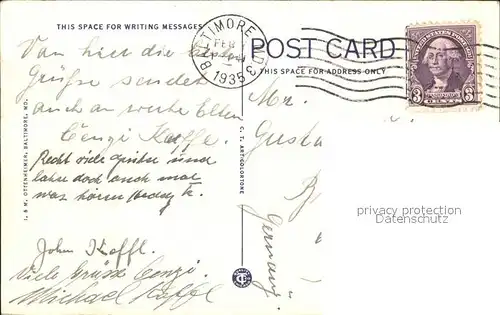 THIS SPACE FOR WRITING MESSAGES
BALTIMORE, MD. 3
FEB
1935
POST CARD
THIS SPACE FOR ADDRESS ONLY
UNITED STATES POSTAGE
3 3
Von hier die besten
Grüße sendet
auch an werte Eltern
Cenzi Kaffl.
Recht viele Grüße und
lahs doch auch mal
was hören Hedwig K.
John Kaffl.
Viele Grüsse Cenzi.
Michael Kaffl
Mr.
Gusta
Germany
I. & M. OTTENHEIMER, BALTIMORE, MD.
C. T. ART-COLORTONE
privacy protection
Datenschutz